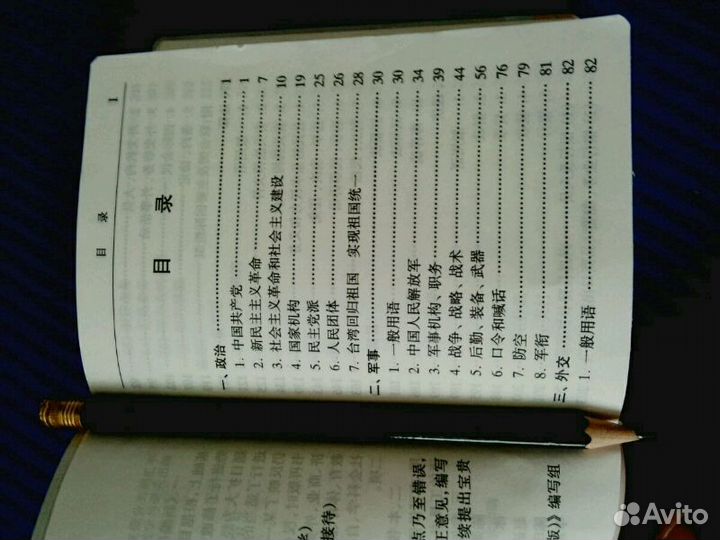 目 录 1
目 录
一、政治 ………… 1
1. 中国共产党 ………… 1
2. 新民主主义革命 ………… 7
3. 社会主义革命和社会主义建设 ………… 10
4. 国家机构 ………… 19
5. 民主党派 ………… 25
6. 人民团体 ………… 26
7. 台湾回归祖国 实现祖国统一 ………… 28
二、军事 ………… 30
1. 一般用语 ………… 30
2. 中国人民解放军 ………… 34
3. 军事机构、职务 ………… 39
4. 战争、战略、战术 ………… 44
5. 后勤、装备、武器 ………… 56
6. 口令和喊话 ………… 76
7. 防空 ………… 79
8. 军衔 ………… 81
三、外交 ………… 82
1. 一般用语 ………… 82
接待)
点乃至错误,
意见,编写
续提出宝贵
版)》编写组
Avito